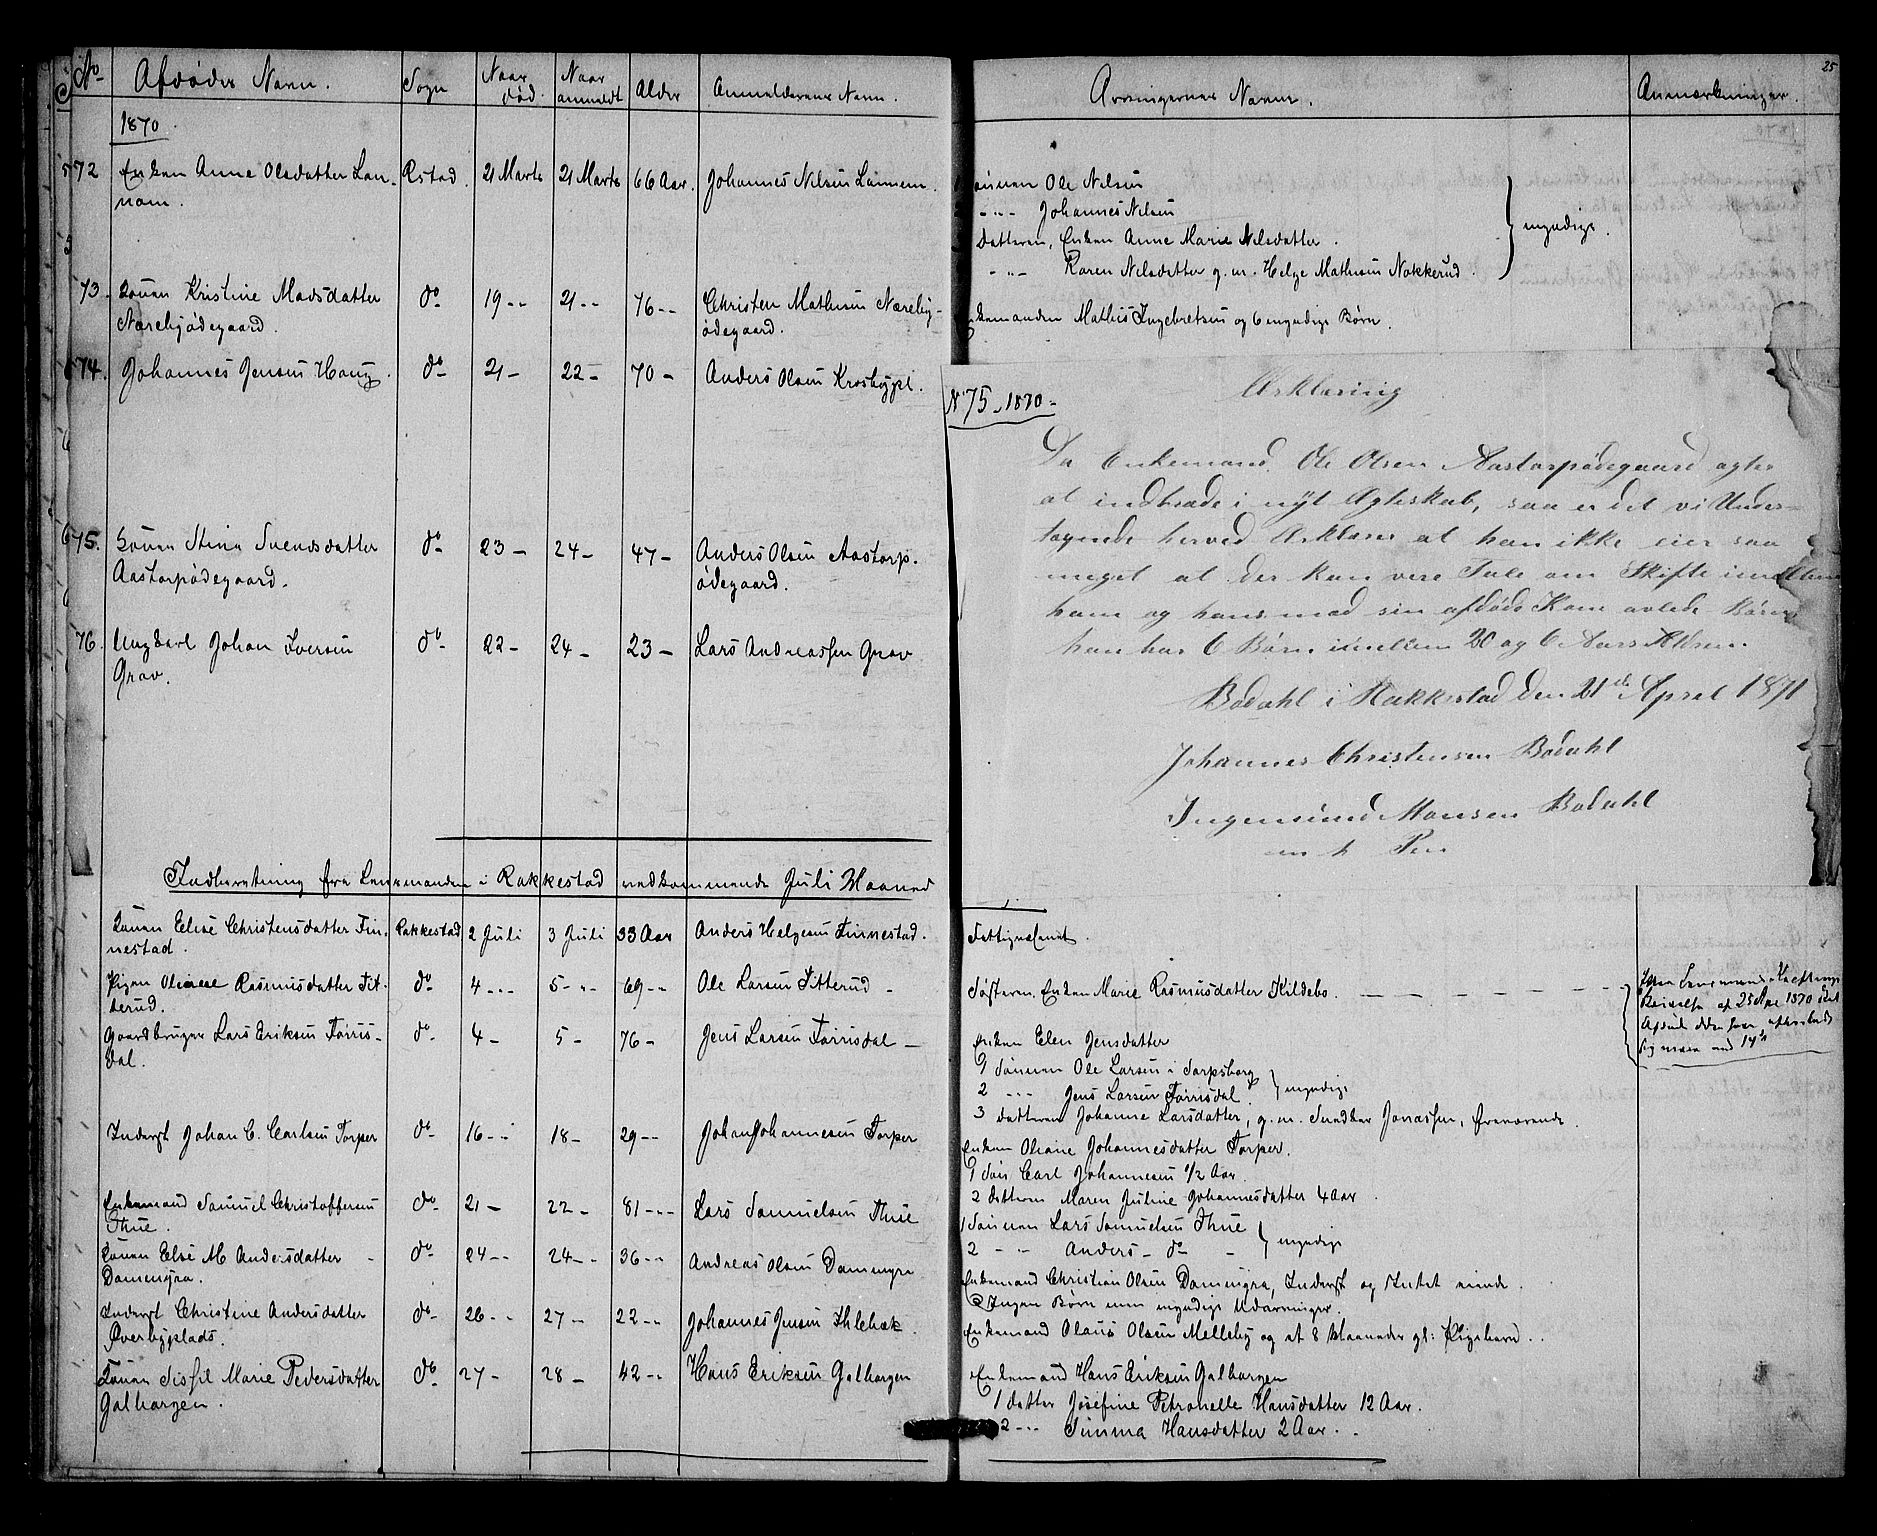 No Afdødes Navn. Sogn Naar død. Naar anmeldt Alder Anmelderens Navn. Arvingernes Navne. Anmærkninger. 25
1870.
72 Enken Anne Olsdatter Lan- Rstad. 21 Marts 21 Marts 66 Aar. Johannes Nilsen Lannem. Sønnen Ole Nilsen
nem. -"- Johannes Nilsen
Datteren, Enken Anne Marie Nilsdatter. myndige.
-"- Karen Nilsdatter g. m. Helge Mathisen Nakkerud.
73. Konen Kristine Madsdatter do 19 -- 21 -- 76 -- Christen Mathisen Næreby- Enkemanden Mathis Ingebretsen og 6 myndige Børn.
Nærebyødegaard. ødegaard.
74. Johannes Jensen Haug. do 21 - 22 - 70 - Anders Olsen Krosbypl.
No 75 - 1870 -
Erklæring
Da Enkemand Ole Olsen Aastorpødegaard agter
at indtræde i nyt Ægteskab, saa er det vi Under-
tegnede herved Erklærer at han ikke eier saa
meget at der kan være Tale om Skifte imellem
ham og hans med sin afdøde Kone avlede Børn
han har 6 Børn imellem 20 og 6 Aars Alderen.
Bødahl i Rakkestad den 21de April 1871
Johannes Christensen Bødahl
Ingemund Monsen Bødahl
m. h. Pen
75. Konen Stina Svendsdatter do 23 - 24 - 47 - Anders Olsen Aastorp-
Aastorpødegaard. ødegaard.
76. Ungkarl Johan Iversen do 22 - 24 - 23 - Lars Andreassen Grav
Grav.
Indberetning fra Lensmanden i Rakkestad vedkommende Juli Maaned
Konen Elise Christensdatter Fin- Rakkestad 2 Juli 3 Juli 33 Aar Anders Helgesen Finnestad. Fattigvæsenet.
nestad.
Pigen Oliane Rasmusdatter Tit- do 4 -- 5 -- 69 -- Ole Larsen Titterud - Søsteren, Enken Marie Rasmusdatter Kildebo.
terud.
Gaardbruger Lars Eriksen Torris- do 4 - 5 - 76 - Jens Larsen Torrisdal - Enken Elen Jensdatter
dal. 1 Sønnen Ole Larsen i Sarpsborg
2 -"- Jens Larsen Torrisdal. myndige
3 datteren Johanne Larsdatter, g. m. Snedker Jonassen, fraværende.
Inderst Johan C. Carlsen Torper do 16 -- 18 - 29 -- Johan Johannesen Torper Enken Oliane Johannesdatter Torper.
1 Søn Carl Johannesen 1/2 Aar
2 datteren Maren Juline Johannesdatter 4 Aar.
Enkemand Samuel Christoffersen do 21 - 22 - 81 -- Lars Samuelsen Thue 1 Sønnen Lars Samuelsen Thue
Thue. 2 -"- Anders - do - myndige
Konen Else M Andersdatter do 24 -- 24 -- 36 -- Andreas Olsen Dammyra Enkemand Christian Olsen Dammyra, Inderst og Intet eiende.
Dammyra. Ingen Børn men myndige Udarvinger.
Inderst Christine Andersdatter do 26 -- 27 -- 22 -- Johannes Jensen Ihlebæk. Enkemand Olaus Olsen Melleby og et 8 Maaneder gl: Pigebarn.
Øverbyplads.
Konen Sissil Marie Pedersdatter do 27 - 28 - 42 -- Hans Eriksen Galhargen Enkemand Hans Eriksen Galhargen
Galhargen. 1 datter Josefine Petronelle Hansdatter 12 Aar.
2 -"- Simma Hansdatter 2 Aar.